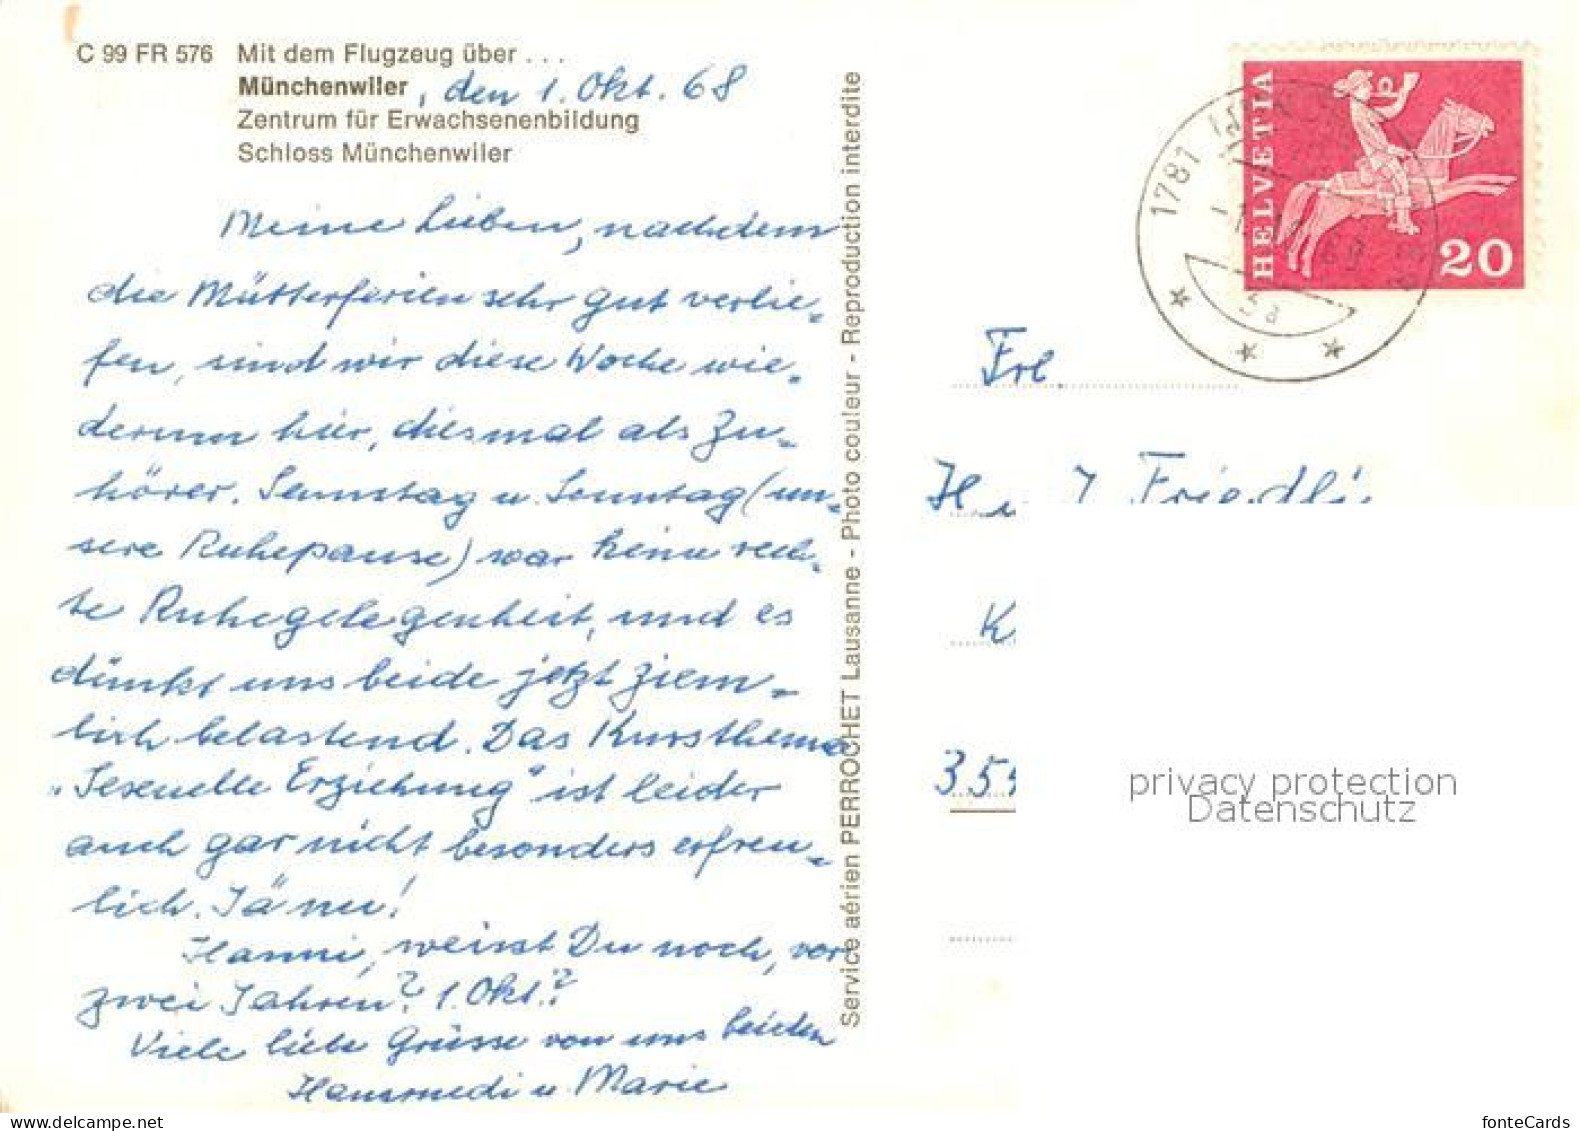 C 99 FR 576 Mit dem Flugzeug über ...
Münchenwiler, den 1. Okt. 68
Zentrum für Erwachsenenbildung
Schloss Münchenwiler
Meine Lieben, nachdem
die Mütterferien sehr gut verlie-
fen, sind wir diese Woche wie-
derum hier, diesmal als Zu-
hörer. Samstag u. Sonntag (un-
sere Ruhepause) war keine rech-
te Ruhegelegenheit, und es
dünkt uns beide jetzt ziem-
lich belastend. Das Kursthema
"Sexuelle Erziehung" ist leider
auch gar nicht besonders erfreu-
lich. Jä nu!
Hanni, weisst Du noch, vor
zwei Jahren? 1. Okt.?
Viele liebe Grüsse von uns beiden
Hansruedi u. Marie
Service aérien PERROCHET Lausanne - Photo couleur - Reproduction interdite
HELVETIA
20
1781
Frl.
Friedli
K
privacy protection
Datenschutz
fonteCards